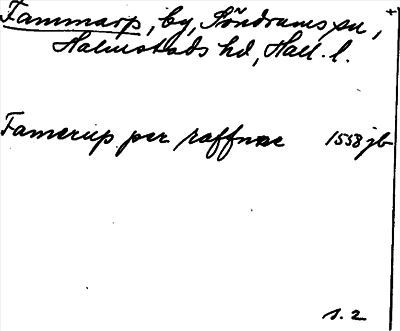 Fammarp, by, Söndrums sn, +
Halmstads hd, Hall. l.
Famerup per raffnæ 1558 jb
s. 2